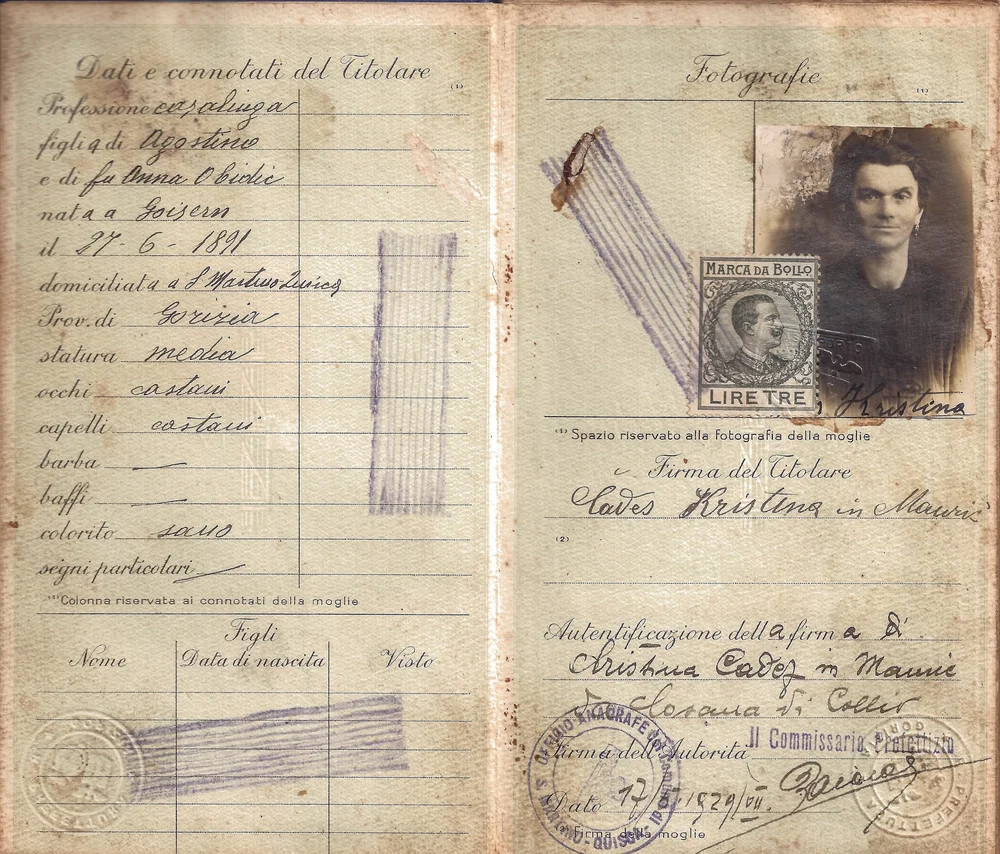 Dati e connotati del Titolare
(1)
Professione casalinga
figlia di Agostino
e di fu Anna Obidic
nata a Goisern
il 27-6-1891
domiciliata a S Martino Quisca
Prov. di Gorizia
statura media
occhi castani
capelli castani
barba —
baffi —
colorito sano
segni particolari —
(1) Colonna riservata ai connotati della moglie
Figli
Nome Data di nascita Visto
Fotografie
(1)
MARCA DA BOLLO
LIRE TRE
Kristina
(1) Spazio riservato alla fotografia della moglie
Firma del Titolare
Cades Kristina in Mauric
(2)
Autentificazione della firma di
Cristina Cadez in Mauric
Hosana di Collio
UFFICIO ANAGRAFE
QUISCA
Firma dell'Autorità
Il Commissario Prefettizio
Dato 17 1929/VII.
Firma della moglie